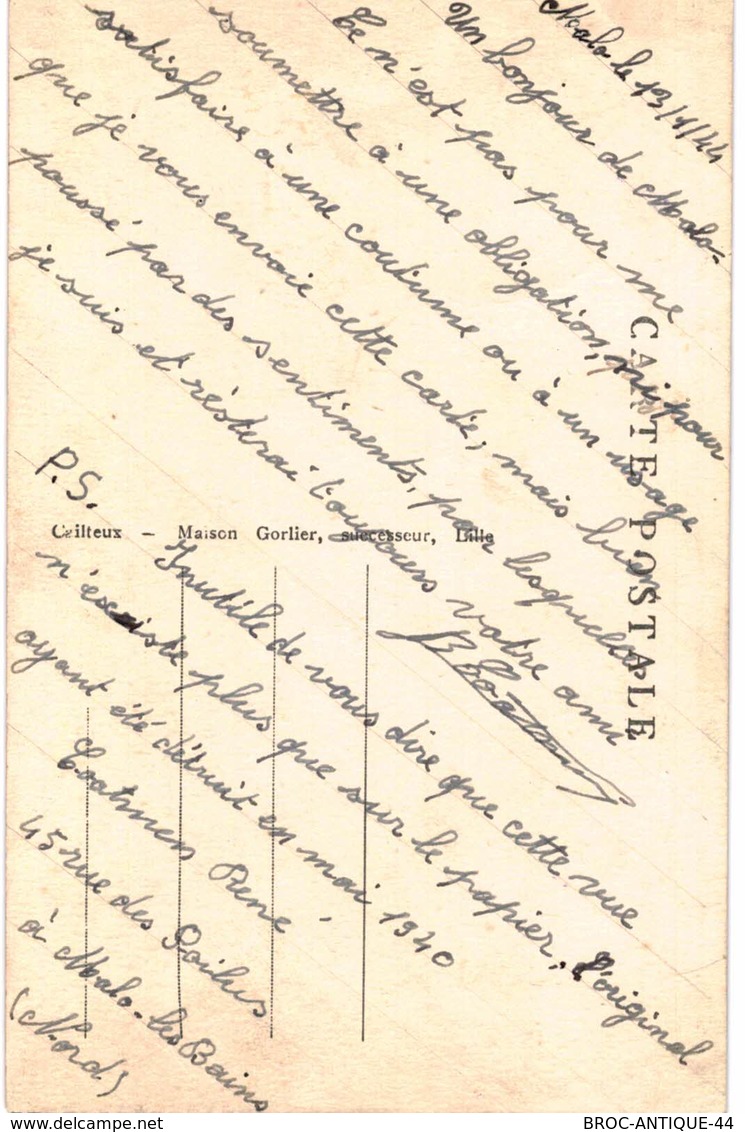 Malo le 13/1/44
Un bonjour de Malo-
Ce n'est pas pour me
soumettre à une obligation, ni pour
satisfaire à une coutume ou à un usage
que je vous envoie cette carte, mais bien
poussé par des sentiments, par lesquels
je suis et resterai toujours votre ami
P.S.
Inutile de vous dire que cette vue
n'existe plus que sur le papier, l'original
ayant été détruit en mai 1940
Coatmen René
45 rue des Poilus
à Malo-les Bains
(Nord)
CARTE POSTALE
Cailteux — Maison Gorlier, successeur, Lille
BROC-ANTIQUE-44